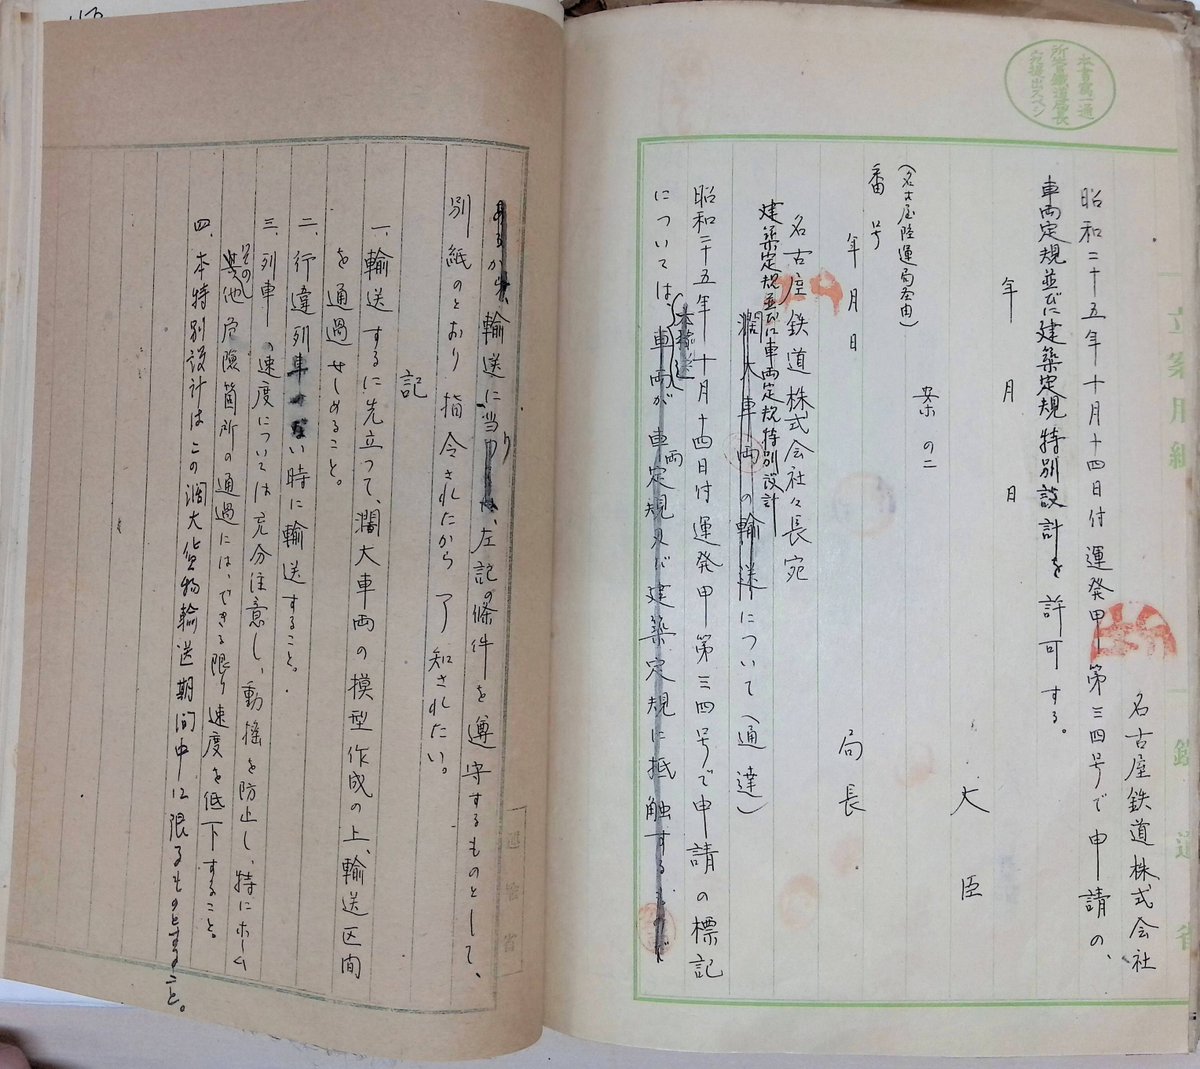 本書寫一通
所管鐵道局長
宛提出スベシ
立案用紙
鐵道省
名古屋鉄道株式会社
昭和二十五年十月十四日付運発甲第三四号で申請の、
車両定規並びに建築定規特別設計を許可する。
年月日
大臣
案の二
(名古屋陸運局経由)
番号
年月日
局長
名古屋鉄道株式会社々長宛
建築定規並びに車両定規特別設計
濶大車両の輸送について(通達)
昭和二十五年十月十四日付運発甲第三四号で申請の標記
については
車両が車両定規及び建築定規に抵触するもので
あるから、輸送に当り、左記の條件を遵守するものとして、
別紙のとおり指令されたから了知されたい。
記
一、輸送するに先立つて、濶大車両の模型作成の上、輸送区間
を通過せしめること。
二、行違列車のない時に輸送すること。
三、列車の速度については充分注意し、動搖を防止し、特にホーム
その他危険箇所の通過には、できる限り速度を低下すること。
四、本特別設計はこの濶大貨物輸送期間中に限るものとすること。